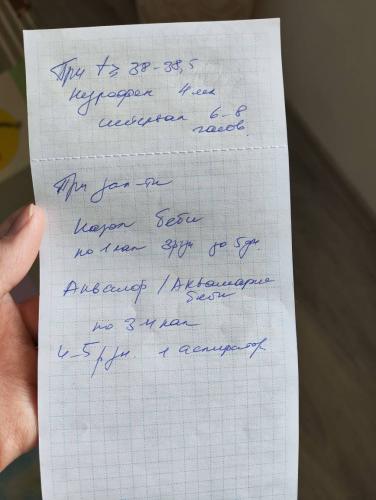 При t ≥ 38-38,5
Нурофен 4 мл
интервал 6-8
часов.
При зал-ти
Назол беби
по 1 кап 3 р/дн до 5 дн.
Аквалор / Аквамарис
беби
по 3-4 кап
4-5 р/дн. + аспиратор.